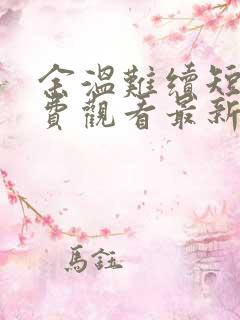 余溫難續短
費觀看最新
馬鈺